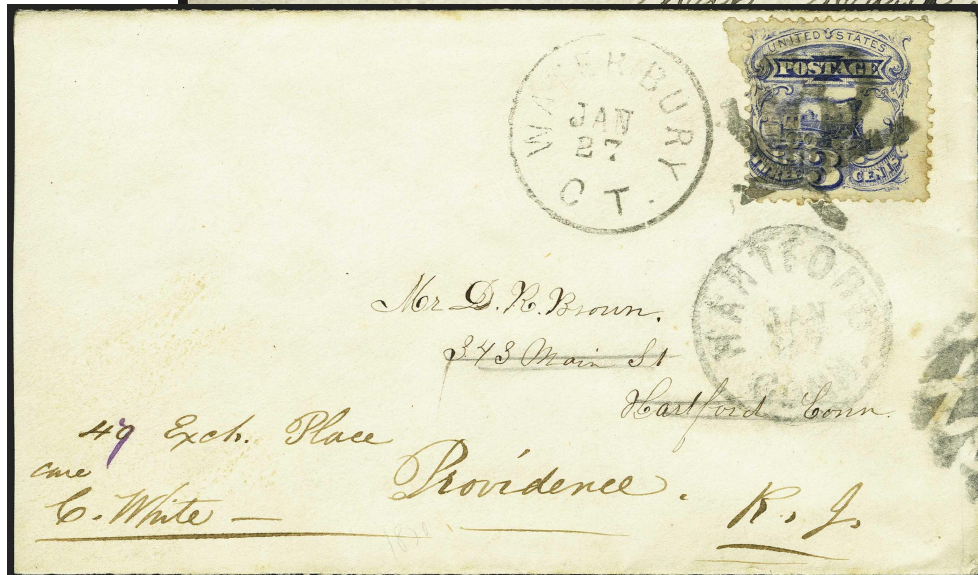 WATERBURY
JAN
27
CT.
UNITED STATES
POSTAGE
THREE 3 CENTS
HARTFORD
JAN
CONN.
Mr D. R. Brown.
343 Main St
Hartford Conn.
49 Exch. Place
care
C. White —
Providence.
R. I.